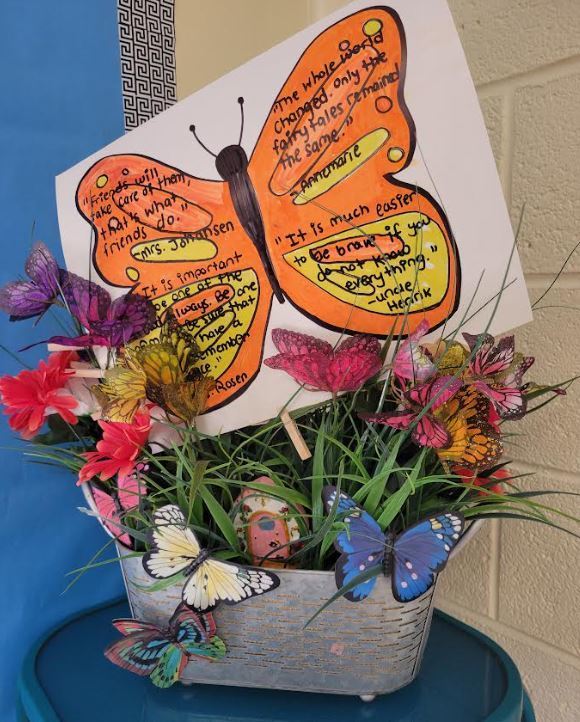 "Friends will
take care of them,
that is what
friends do."
Mrs. Johansen
"The whole world
changed. Only the
fairy tales remained
the same."
-Annemarie
It is important
be one of the
always. Be one
Be sure that
have a
remember
Rosen
"It is much easier
to be brave if you
do not know
everything."
-uncle
Henrik